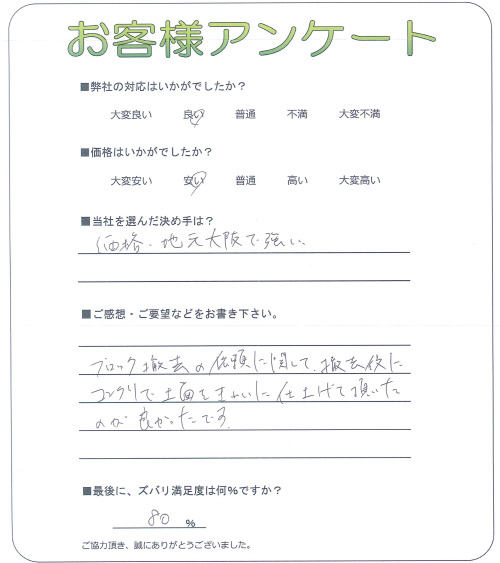 お客様アンケート
■弊社の対応はいかがでしたか？
大変良い 良い 普通 不満 大変不満
■価格はいかがでしたか？
大変安い 安い 普通 高い 大変高い
■当社を選んだ決め手は？
価格・地元大阪で強い
■ご感想・ご要望などをお書き下さい。
ブロック撤去の依頼に関して、撤去後に
コンクリで土面をきれいに仕上げて頂いた
のが良かったです。
■最後に、ズバリ満足度は何％ですか？
80 ％
ご協力頂き、誠にありがとうございました。